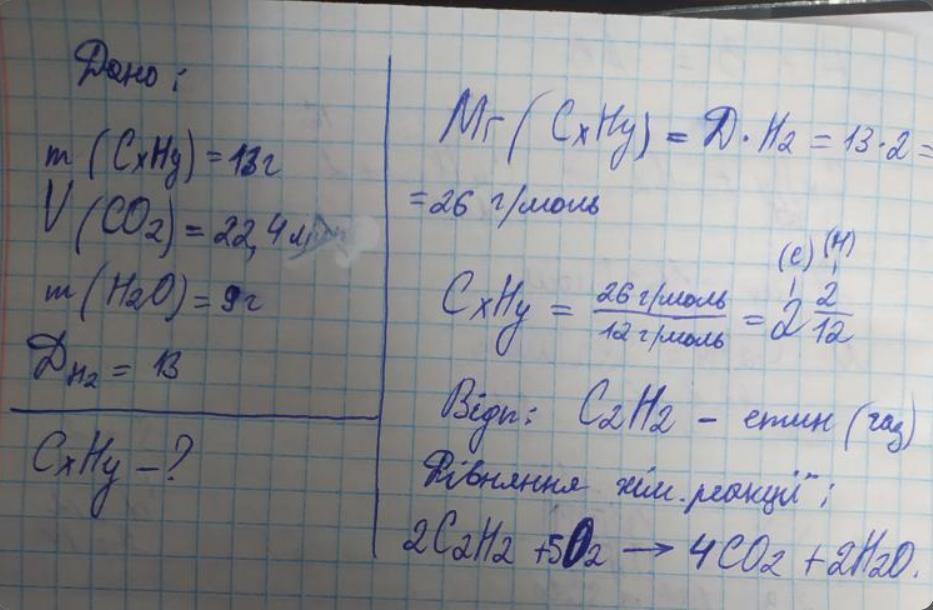 Дано:
m (CxHy) = 13г
V (CO2) = 22,4 л
m (H2O) = 9г
DH2 = 13
CxHy - ?
Mr (CxHy) = D·H2 = 13·2 =
= 26 г/моль
(C) (H)
CxHy = 26 г/моль / 12 г/моль = 2 2/12
Відп: C2H2 - етин (газ)
Рівняння хім. реакції:
2C2H2 + 5O2 → 4CO2 + 2H2O.